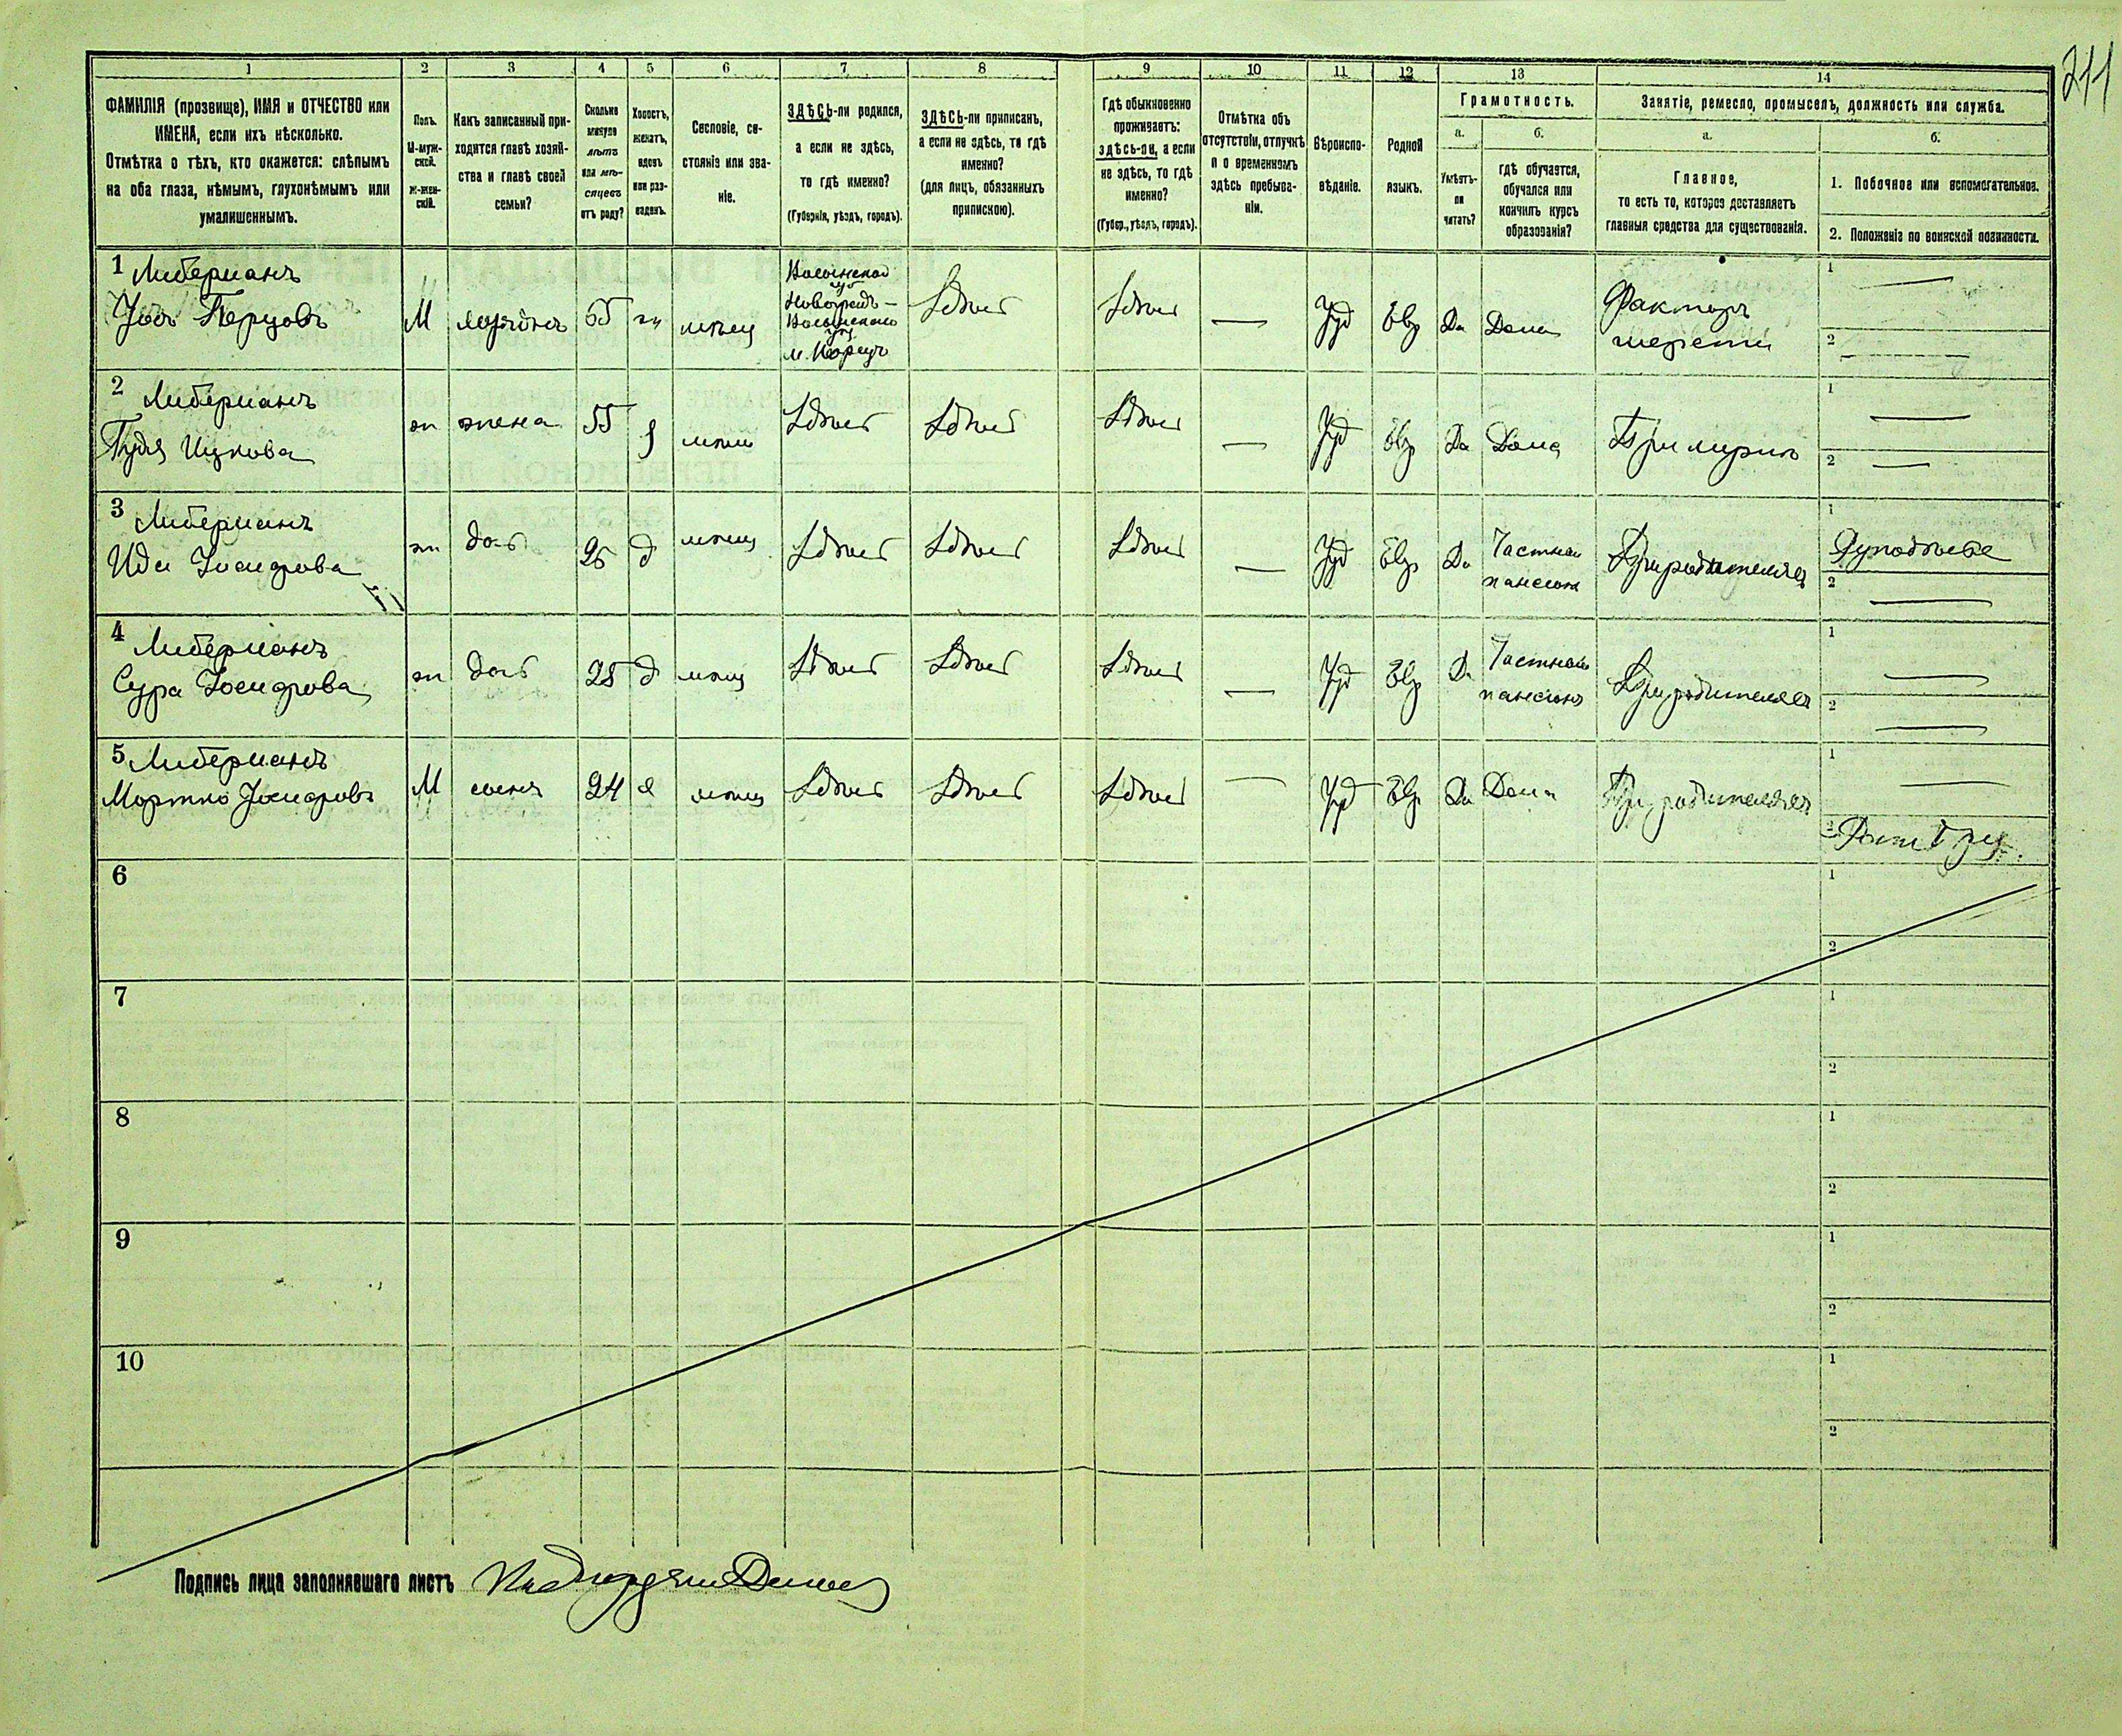 211
1
2
3
4
5
6
7
8
9
10
11
12
13
14
ФАМИЛІЯ (прозвище), ИМЯ и ОТЧЕСТВО или
ИМЕНА, если ихъ нѣсколько.
Отмѣтка о тѣхъ, кто окажется: слѣпымъ
на оба глаза, нѣмымъ, глухонѣмымъ или
умалишеннымъ.
Полъ.
М-муж-
ской.
Ж-жен-
скій.
Какъ записанный при-
ходится главѣ хозяй-
ства и главѣ своей
семьи?
Сколько
минуло
лѣтъ
или мѣ-
сяцевъ
отъ роду?
Холостъ,
женатъ,
вдовъ
или раз-
веденъ.
Сословіе, со-
стояніе или зва-
ніе.
ЗДѢСЬ-ли родился,
а если не здѣсь,
то гдѣ именно?
(Губернія, уѣздъ, городъ).
ЗДѢСЬ-ли приписанъ,
а если не здѣсь, то гдѣ
именно?
(для лицъ, обязанныхъ
припискою).
Гдѣ обыкновенно
проживаетъ:
здѣсь-ли, а если
не здѣсь, то гдѣ
именно?
(Губер., уѣздъ, городъ).
Отмѣтка объ
отсутствіи, отлучкѣ
и о временномъ
здѣсь пребыва-
ніи.
Вѣроиспо-
вѣданіе.
Родной
языкъ.
Грамотность.
а.
Умѣетъ-
ли
читать?
б.
гдѣ обучается,
обучался или
кончилъ курсъ
образованія?
Занятіе, ремесло, промыселъ, должность или служба.
а.
Главное,
то есть то, которое доставляетъ
главныя средства для существованія.
б.
1. Побочное или вспомогательное.
2. Положеніе по воинской повинности.
1 Либерманъ
Іосъ Перцовъ
М
хозяинъ
65
жн
мѣщ
Волынской
губ
Новоград-
Волынскаго
у
м. Корец
Здѣсь
Здѣсь
—
Іуд
Евр
Да
Дома
Факторъ
шерсти
1 —
2 —
2 Либерманъ
Гудя Ицкова
ж
жена
55
з
мѣщ
Здѣсь
Здѣсь
Здѣсь
—
Іуд
Евр
Да
Дома
При мужѣ
1 —
2 —
3 Либерманъ
Ида Іосифова
ж
дочь
26
д
мѣщ
Здѣсь
Здѣсь
Здѣсь
—
Іуд
Евр
Да
Частном
пансіонѣ
При родителях
1 Рукодѣліе
2 —
4 Либерманъ
Сура Іосифова
ж
дочь
25
д
мѣщ
Здѣсь
Здѣсь
Здѣсь
—
Іуд
Евр
Да
Частном
пансіонѣ
При родителях
1 —
2 —
5 Либерманъ
Мортко Іосифовъ
М
сынъ
24
х
мѣщ
Здѣсь
Здѣсь
Здѣсь
—
Іуд
Евр
Да
Дома
При родителях
1 —
2
6
1
2
7
1
2
8
1
2
9
1
2
10
1
2
Подпись лица заполнявшаго листъ